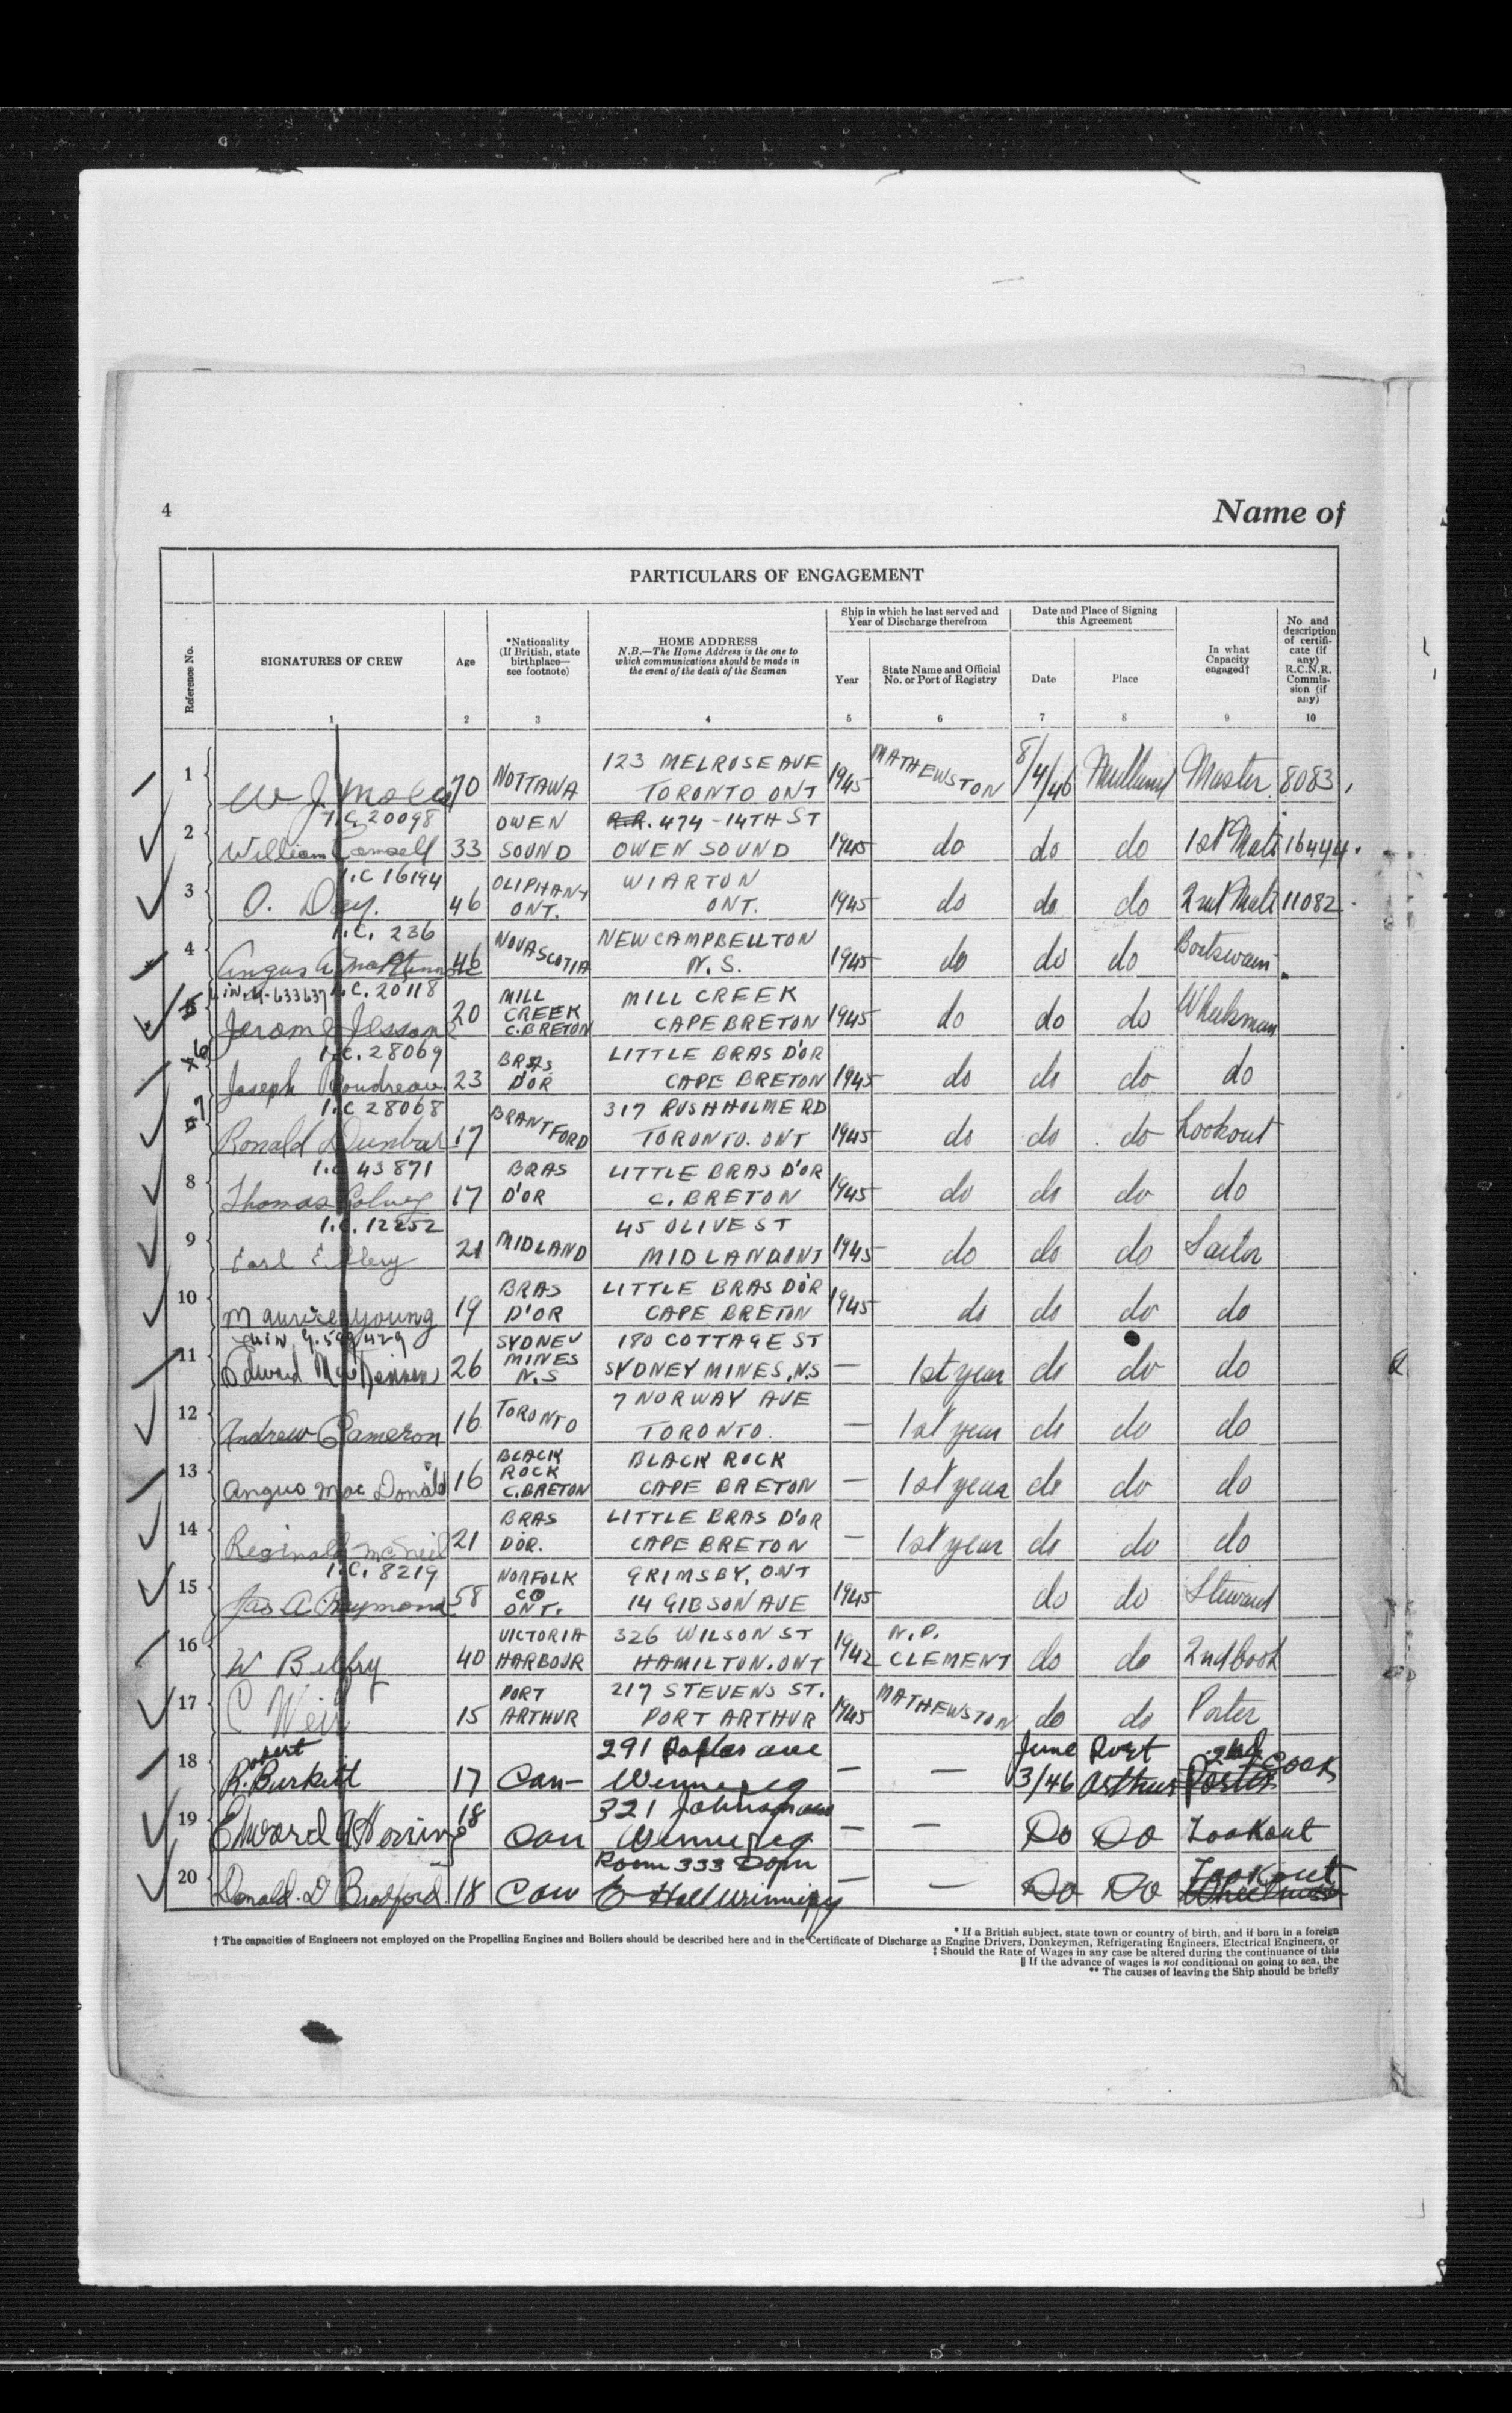 4
Name of
PARTICULARS OF ENGAGEMENT
Reference No.
SIGNATURES OF CREW
Age
*Nationality (If British, state birthplace— see footnote)
HOME ADDRESS
N.B.—The Home Address is the one to which communications should be made in the event of the death of the Seaman
Ship in which he last served and Year of Discharge therefrom
Year
State Name and Official No. or Port of Registry
Date and Place of Signing this Agreement
Date
Place
In what Capacity engaged†
No and description of certificate (if any) R.C.N.R. Commission (if any)
1 2 3 4 5 6 7 8 9 10
1 W J. 70 NOTTAWA 123 MELROSE AVE TORONTO ONT 1945 MATHEWSTON 8/4/46 Midland Master 8083
I.C. 20098
2 William 33 OWEN SOUND R.R. 474 - 14TH ST OWEN SOUND 1945 do do do 1st Mate 16444
I.C 16194
3 O. Day. 46 OLIPHANT ONT. WIARTON ONT. 1945 do do do 2nd Mate 11082
I.C. 236
4 Angus A 46 NOVA SCOTIA NEW CAMPBELLTON N.S. 1945 do do do Boatswain
I.C. 20118
5 Jerome Jesson 20 MILL CREEK C. BRETON MILL CREEK CAPE BRETON 1945 do do do Wheelsman
I.C. 28069
6 Joseph Boudreau 23 BRAS D'OR LITTLE BRAS D'OR CAPE BRETON 1945 do do do do
I.C 28068
7 Ronald Dunbar 17 BRANTFORD 317 RUSHHOLME RD TORONTO. ONT 1945 do do do Lookout
I.C 43871
8 Thomas 17 BRAS D'OR LITTLE BRAS D'OR C. BRETON 1945 do do do do
I.C. 12252
9 Earl Ellery 21 MIDLAND 45 OLIVE ST MIDLAND ONT 1945 do do do Sailor
10 Maurice Young 19 BRAS D'OR LITTLE BRAS D'OR CAPE BRETON 1945 do do do do
11 Edward 26 SYDNEY MINES N.S 180 COTTAGE ST SYDNEY MINES, N.S — 1st year do do do
12 Andrew Cameron 16 TORONTO 7 NORWAY AVE TORONTO. — 1st year do do do
13 Angus Mac Donald 16 BLACK ROCK C. BRETON BLACK ROCK CAPE BRETON — 1st year do do do
14 Reginald McNeil 21 BRAS D'OR. LITTLE BRAS D'OR CAPE BRETON — 1st year do do do
I.C. 8219
15 Jas A Raymond 58 NORFOLK CO ONT. GRIMSBY, ONT 14 GIBSON AVE 1945 do do Steward
16 W Belfry 40 VICTORIA HARBOUR 326 WILSON ST HAMILTON. ONT 1942 N.P. CLEMENT do do 2nd Cook
17 C Weir 15 PORT ARTHUR 217 STEVENS ST. PORT ARTHUR 1945 MATHEWSTON do do Porter
18 Robert Burkitt 17 Can 291 ave Winnipeg — — June 3/46 Port Arthur Porter 2nd Cook
19 Edward 18 Can 321 Winnipeg — — Do Do Lookout
20 Donald. D Bradford 18 Can Room 333 Winnipeg — — Do Do Wheelman Lookout
* If a British subject, state town or country of birth, and if born in a foreign
† The capacities of Engineers not employed on the Propelling Engines and Boilers should be described here and in the Certificate of Discharge as Engine Drivers, Donkeymen, Refrigerating Engineers, Electrical Engineers, or
‡ Should the Rate of Wages in any case be altered during the continuance of this
|| If the advance of wages is not conditional on going to sea, the
** The causes of leaving the Ship should be briefly